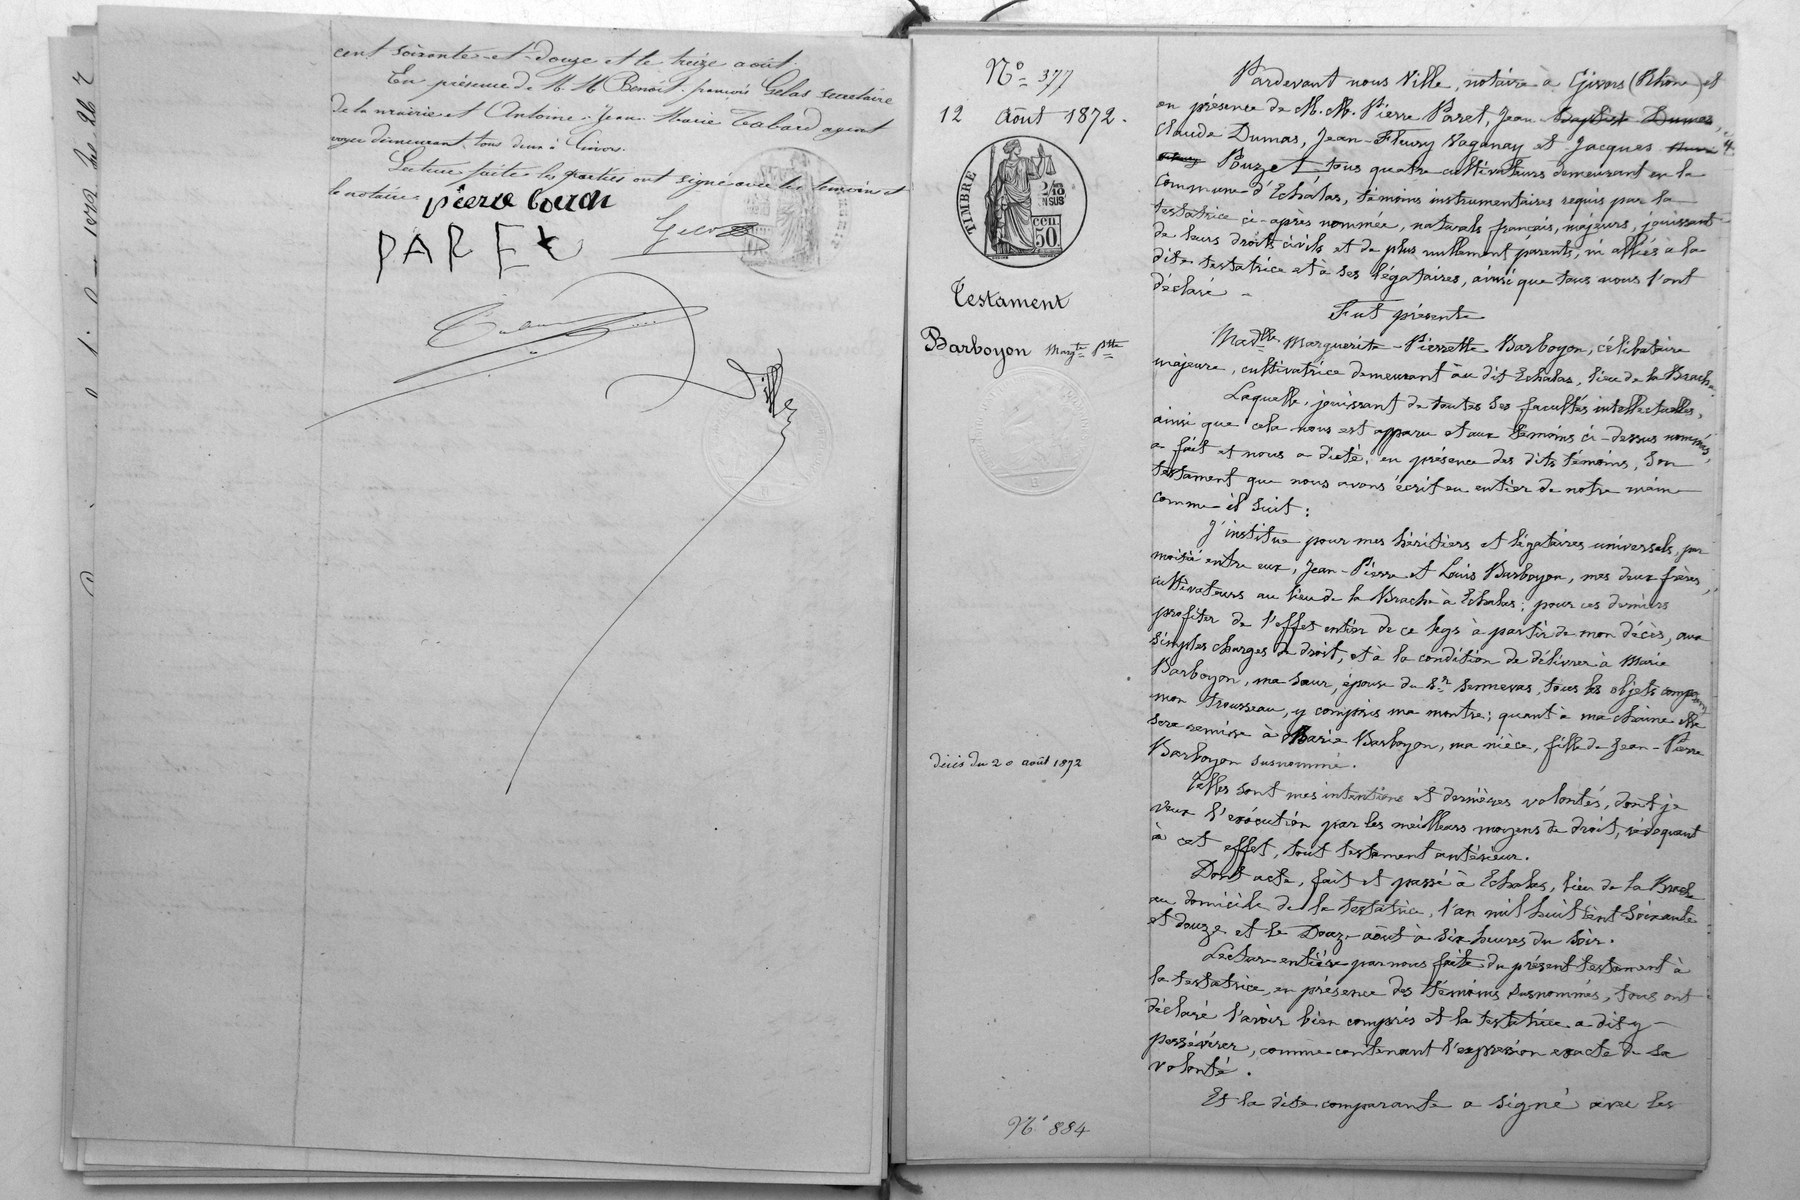 cent soixante-et-douze et le treize août.
En présence de M. M. Benoît-françois Gelas secretaire
de la mairie et Antoine-Jean-Marie Tabard agent
voyer demeurant tous deux à Givors.
Lecture faite les parties ont signé avec les temoins et
le notaire.
pierre
PARET
Gelas
Ville
N° 377
12 Août 1872.
TIMBRE
2/10
EN SUS
50 CEN
Testament
Barboyon Margte Ptte
décès du 20 août 1872
N° 884
Pardevant nous Ville, notaire à Givors (Rhône) et
en présence de M. M. Pierre Paret, Jean Baptiste Dumas,
Claude Dumas, Jean-Fleury Vaganay et Jacques
Pouzet tous quatre cultivateurs demeurant en la
Commune d'Echalas, témoins instrumentaires requis par la
testatrice ci-après nommée, naturels français, majeurs, jouissant
de leurs droits civils et de plus nullement parents, ni alliés a la
dite testatrice et à ses légataires, ainsi que tous nous l'ont
déclaré -
Fut présente
Madlle Marguerite-Pierrette Barboyon, célibataire
majeure, cultivatrice demeurant au dit Echalas, lieu de la Brache.
Laquelle, jouissant de toutes ses facultés intellectuelles,
ainsi que cela nous est apparu et aux témoins ci-dessus nommés,
a fait et nous a dicté, en présence des dits témoins, son
testament que nous avons écrit en entier de notre main
comme il suit :
J'institue pour mes héritiers et légataires universels, par
moitié entre eux, Jean-Pierre et Louis Barboyon, mes deux frères,
cultivateurs au lieu de la Brache à Echalas ; pour ces derniers
profiter de l'effet entier de ce legs à partir de mon décès, aux
simples charges de droit, et à la condition de délivrer à Marie
Barboyon, ma sœur, épouse du Sr Sennevas, tous les objets composant
mon trousseau, y compris ma montre ; quant à ma chaine elle
sera remise à Marie Barboyon, ma nièce, fille de Jean-Pierre
Barboyon susnommé.
Telles sont mes intentions et dernières volontés, dont je
veux l'exécution par les meilleurs moyens de droit, révoquant
à cet effet, tout testament antérieur.
Dont acte, fait et passé à Echalas, lieu de la Brache
au domicile de la testatrice, l'an mil huit cent soixante
et douze et le Douze août à six heures du soir.
Lecture entière par nous faite du présent testament à
la testatrice, en présence des témoins susnommés, tous ont
déclaré l'avoir bien compris et la testatrice a dit y
persévérer, comme contenant l'expression exacte de sa
volonté.
Et la dite comparante a signé avec les